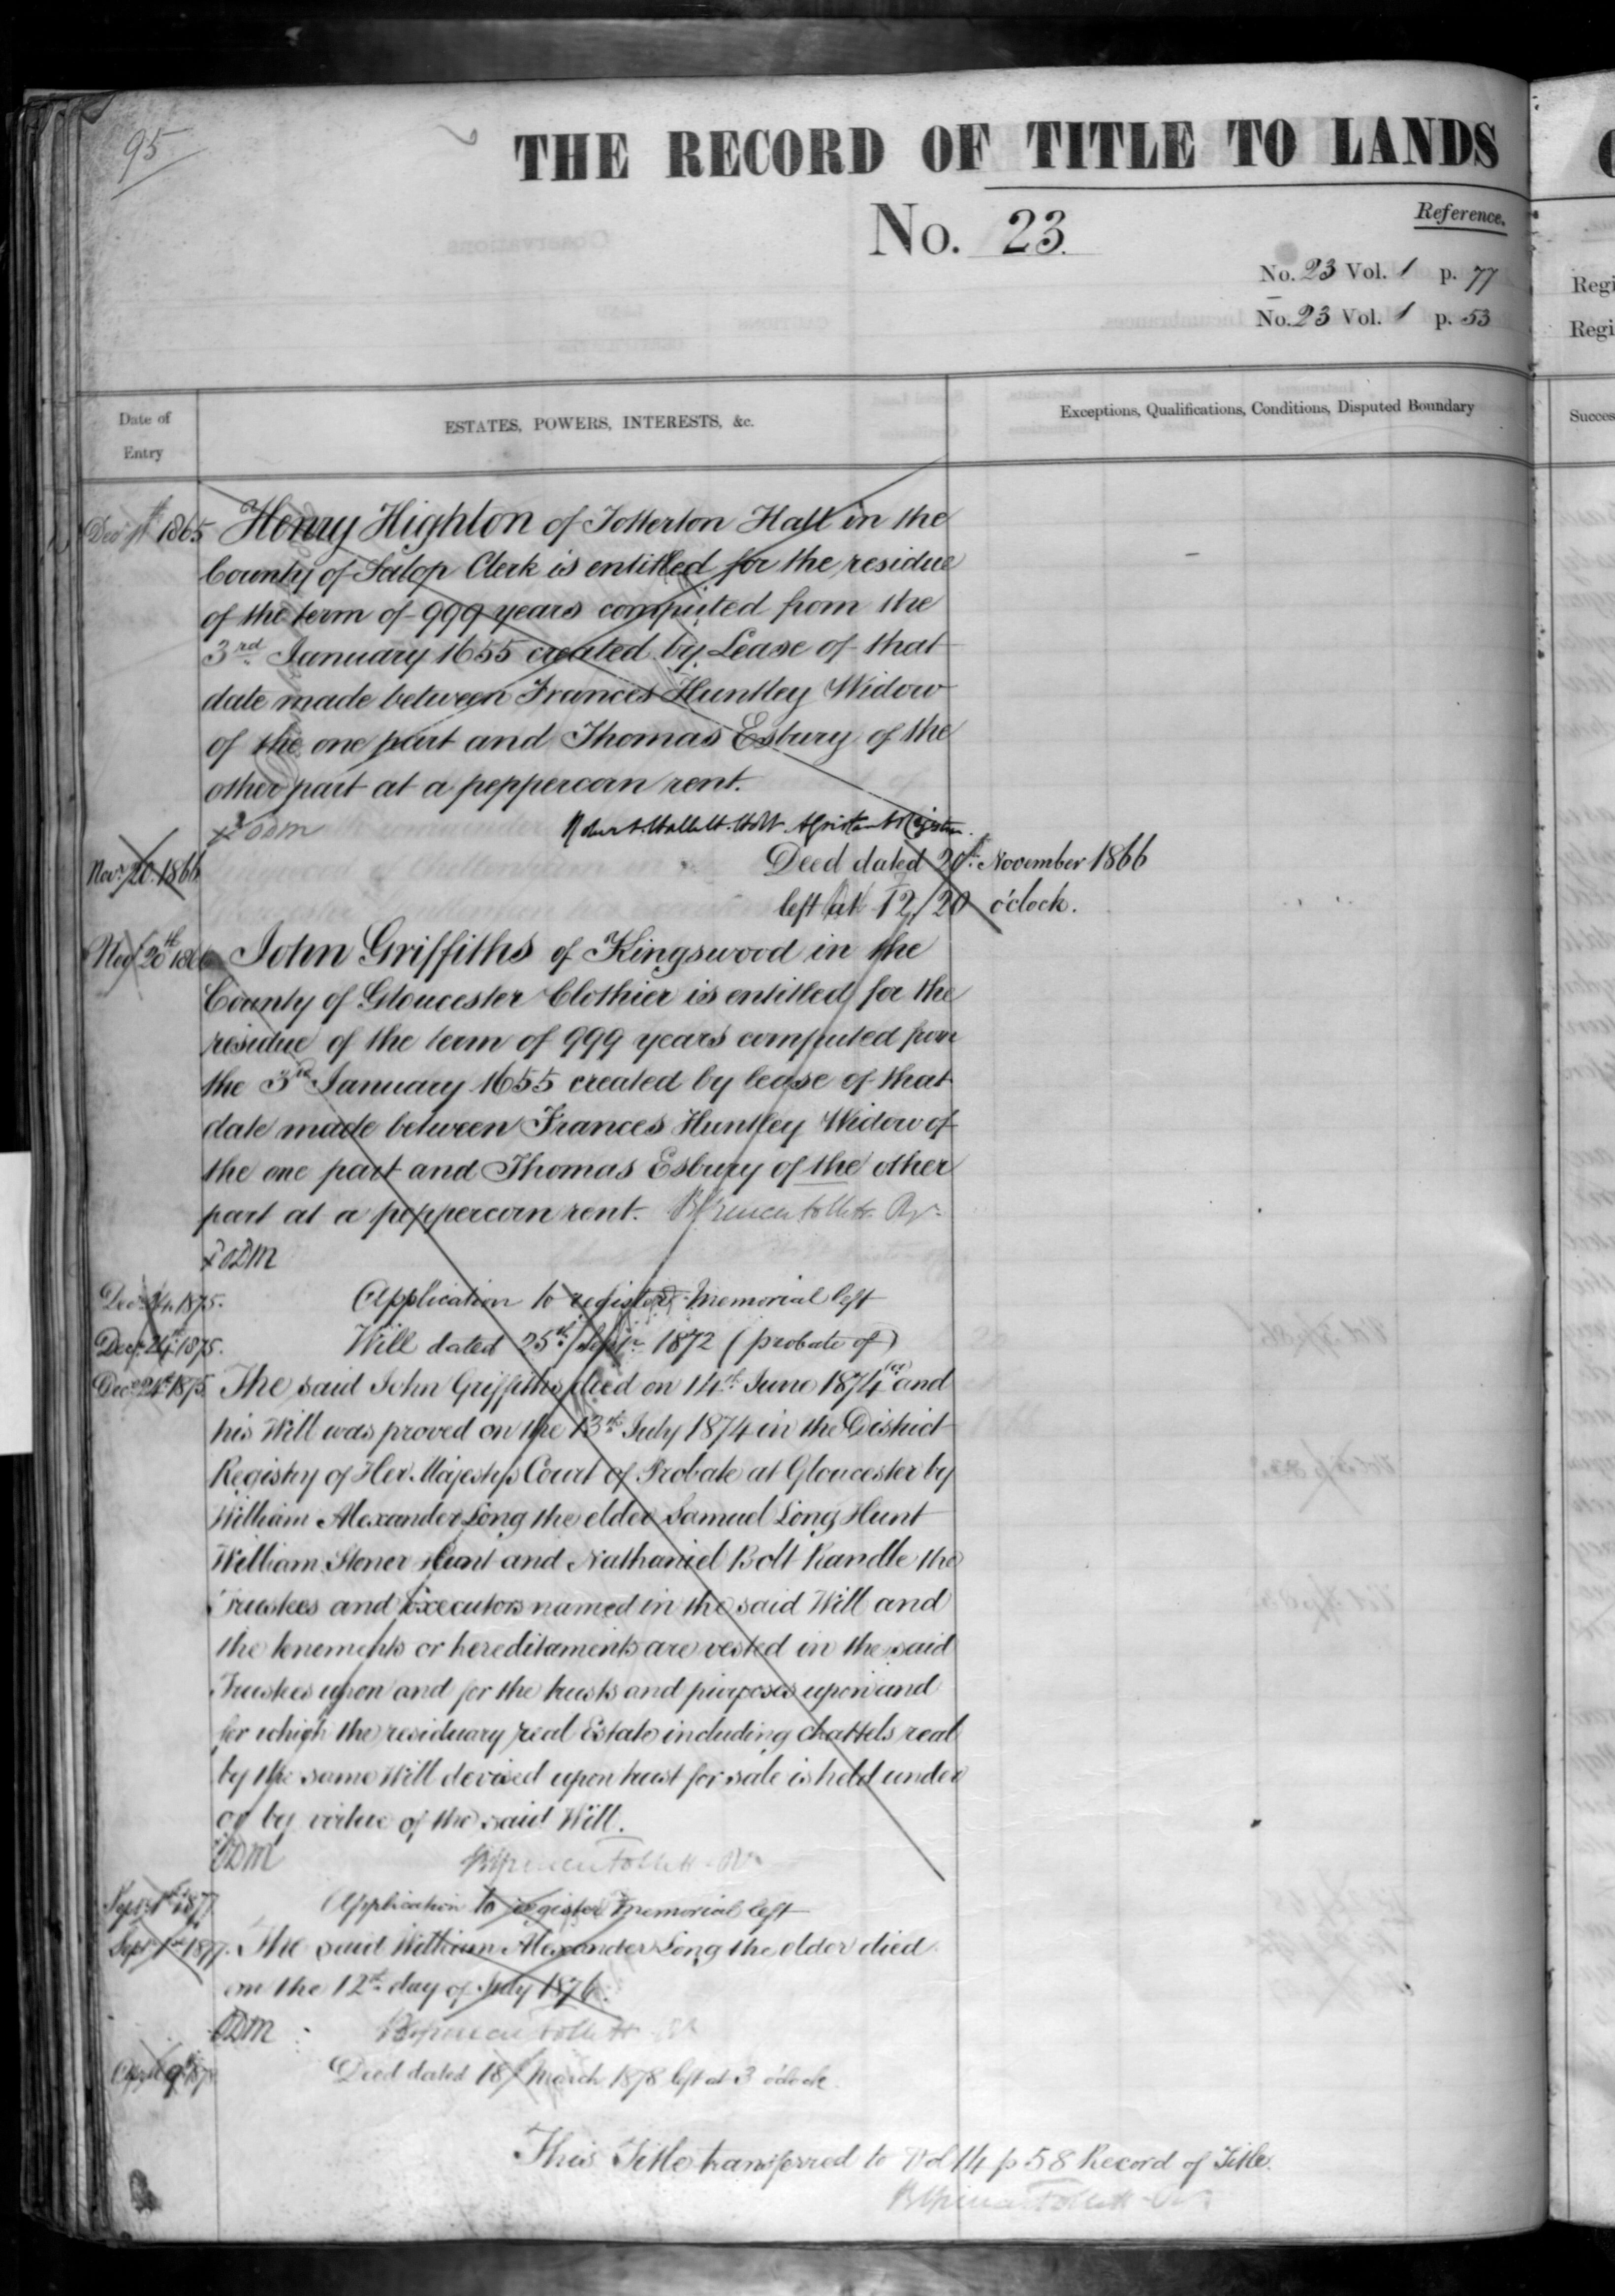 95
THE RECORD OF TITLE TO LANDS
No. 23.
Reference.
No. 23 Vol. 1 p. 77
No. 23 Vol. 1 p. 53
Regi
Regi
Date of
Entry
ESTATES, POWERS, INTERESTS, &c.
Exceptions, Qualifications, Conditions, Disputed Boundary
Succes
1865 Henry Highton of Totterton Hall in the
County of Salop Clerk is entitled for the residue
of the term of 999 years computed from the
3rd January 1655 created by Lease of that
date made between Frances Huntley Widow
of the one part and Thomas Esbury of the
other part at a peppercorn rent.
ODM Robert Hallett Holt Assistant Registrar.
Novr. 20. 1866 Deed dated 20th November 1866
left at 12/20 o'clock.
Nov 20th 1866 John Griffiths of Kingswood in the
County of Gloucester Clothier is entitled for the
residue of the term of 999 years computed from
the 3rd January 1655 created by lease of that
date made between Frances Huntley Widow of
the one part and Thomas Esbury of the other
part at a peppercorn rent. B Spencer Follett Rr.
ODM
Decr. 24. 1875. Application to register Memorial left
Decr. 24th 1875. Will dated 25th Septr. 1872 (probate of)
Decr. 24th 1875 The said John Griffiths died on 14th June 1874 and
his Will was proved on the 13th July 1874 in the District
Registry of Her Majestys Court of Probate at Gloucester by
William Alexander Long the elder Samuel Long Hunt
William Stoner Hunt and Nathaniel Bolt Randle the
Trustees and Executors named in the said Will and
the tenements or hereditaments are vested in the said
Trustees upon and for the trusts and purposes upon and
for which the residuary real Estate including chattels real
by the same Will devised upon trust for sale is held under
or by virtue of the said Will.
ODM B Spencer Follett Rr
Septr. 1st 1877 Application to register Memorial left
Septr 1st 1877. The said William Alexander Long the elder died
on the 12th day of July 1876.
ODM B Spencer Follett Rr
April 9th 1878 Deed dated 18 March 1878 left at 3 o'clock.
This Title transferred to Vol 14 p 58 Record of Title.
B Spencer Follett Rr